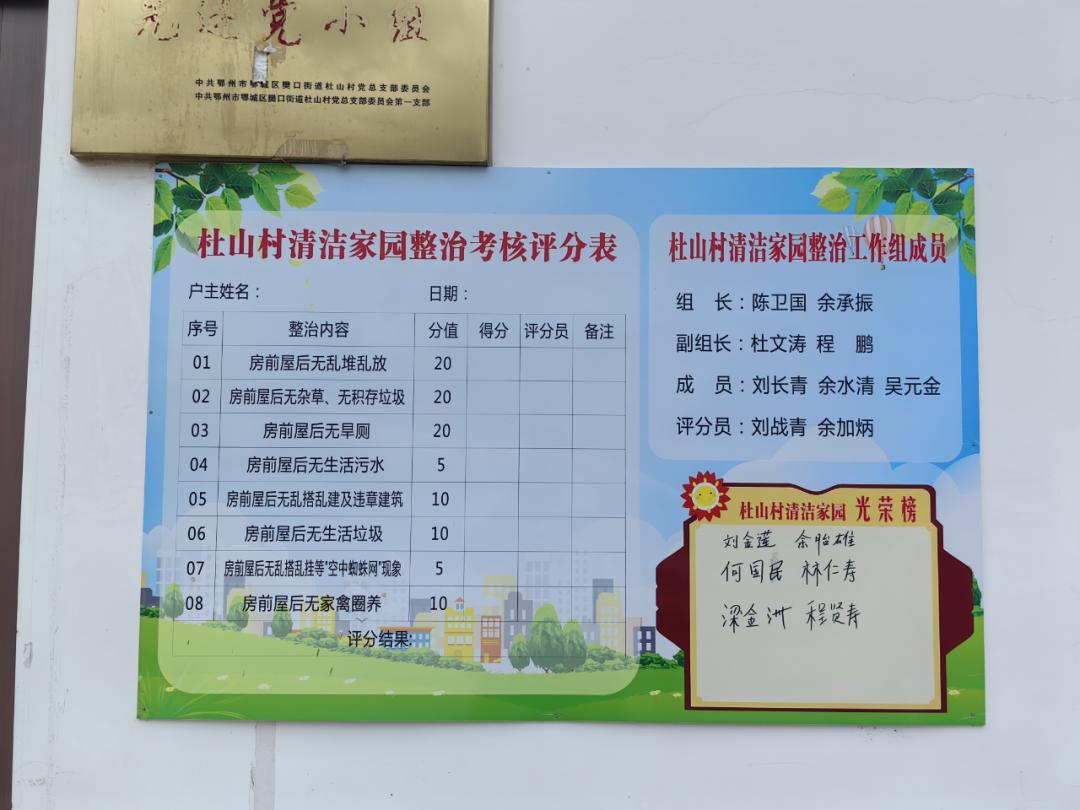 先进党小组
中共鄂州市鄂城区樊口街道杜山村党总支部委员会
中共鄂州市鄂城区樊口街道杜山村党总支部委员会第一支部
杜山村清洁家园整治考核评分表
户主姓名： 日期：
序号 整治内容 分值 得分 评分员 备注
01 房前屋后无乱堆乱放 20
02 房前屋后无杂草、无积存垃圾 20
03 房前屋后无旱厕 20
04 房前屋后无生活污水 5
05 房前屋后无乱搭乱建及违章建筑 10
06 房前屋后无生活垃圾 10
07 房前屋后无乱搭乱挂等"空中蜘蛛网"现象 5
08 房前屋后无家禽圈养 10
评分结果:
杜山村清洁家园整治工作组成员
组 长：陈卫国 余承振
副组长：杜文涛 程 鹏
成 员：刘长青 余水清 吴元金
评分员：刘战青 余加炳
杜山村清洁家园 光荣榜
刘金莲 余贻雄
何国民 林仁寿
梁金洲 程贤寿